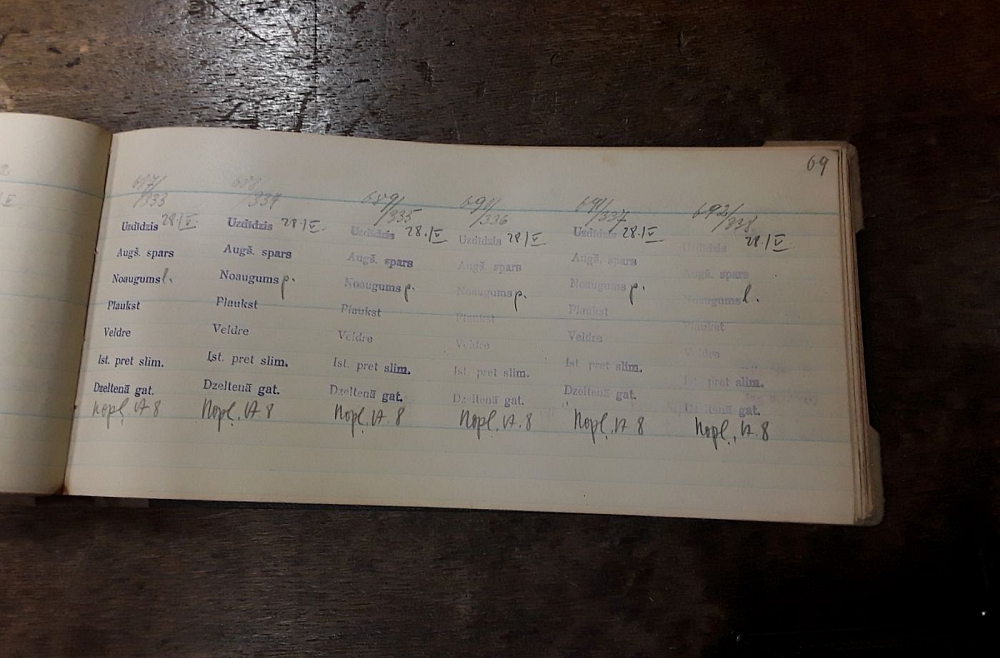 69
687/333 688/334 689/335 691/336 691/337 692/338
Uzdīdzis 28.IV. Uzdīdzis 28.IV. Uzdīdzis 28.IV Uzdīdzis 28.IV Uzdīdzis 28.IV Uzdīdzis 28.IV.
Augš. spars Augš. spars Augš. spars Augš. spars Augš. spars Augš. spars
Noaugums l. Noaugums p. Noaugums p. Noaugums p. Noaugums p. Noaugums l.
Plaukst Plaukst Plaukst Plaukst Plaukst Plaukst
Veldre Veldre Veldre Veldre Veldre Veldre
Ist. pret slim. Ist. pret slim. Ist. pret slim. Ist. pret slim. Ist. pret slim. Ist. pret slim.
Dzeltenā gat. Dzeltenā gat. Dzeltenā gat. Dzeltenā gat. Dzeltenā gat. Dzeltenā gat.
Nopļ. 17.8 Nopļ. 17.8 Nopļ. 17.8 Nopļ. 17.8 Nopļ. 17.8 Nopļ. 17.8